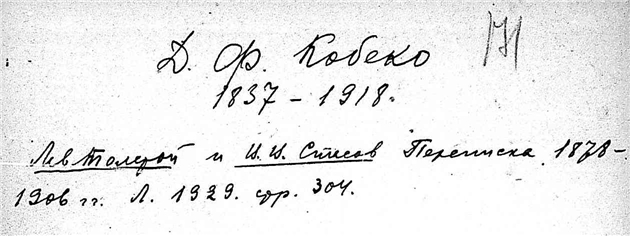 Д. Ф. Кобеко 171
1837 - 1918.
Лев Толстой и В. В. Стасов Переписка 1878-
1906 гг. Л. 1929. стр. 304.